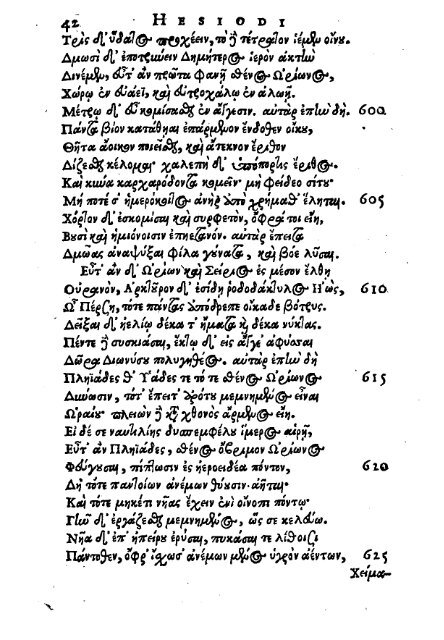 42 HESIODI
Τρὶς δ' ὕδατος προχέειν, τὸ δὲ τέτρατον ἱέμεν οἴνου.
Δμωσὶ δ' ἐποτρύνειν Δημήτερος ἱερὸν ἀκτὴν
Δινέμεν, εὖτ' ἂν πρῶτα φανῇ σθένος Ὠρίωνος,
Χώρῳ ἐν εὐαεῖ, καὶ εὐτροχάλῳ ἐν ἀλωῇ.
Μέτρῳ δ' εὖ κομίσασθαι ἐν ἄγγεσιν. αὐτὰρ ἐπὴν δὴ 600
Πάντα βίον κατάθηαι ἐπάρμενον ἔνδοθεν οἴκου,
Θῆτα ἄοικον ποιεῖσθαι, καὶ ἄτεκνον ἔριθον
Δίζεσθαι κέλομαι· χαλεπὴ δ' ὑπόπορτις ἔριθος.
Καὶ κύνα καρχαρόδοντα κομεῖν· μὴ φείδεο σίτου·
Μή ποτέ σ' ἡμερόκοιτος ἀνὴρ ἀπὸ χρήμαθ' ἕληται. 605
Χόρτον δ' ἐσκομίσαι καὶ συρφετὸν, ὄφρα τοι εἴη,
Βουσὶ καὶ ἡμιόνοισιν ἐπηετανόν. αὐτὰρ ἔπειτα
Δμῶας ἀναψύξαι φίλα γούνατα, καὶ βόε λῦσαι.
Εὖτ' ἂν δ' Ὠρίων καὶ Σείριος ἐς μέσον ἔλθῃ
Οὐρανὸν, Ἀρκτοῦρον δ' ἐσίδῃ ῥοδοδάκτυλος Ἠὼς, 610
Ὦ Πέρση, τότε πάντας ἀπόδρεπε οἴκαδε βότρυς.
Δεῖξαι δ' ἠελίῳ δέκα τ' ἤματα καὶ δέκα νύκτας.
Πέντε δὲ συσκιάσαι, ἕκτῳ δ' εἰς ἄγγε' ἀφύσσαι
Δῶρα Διωνύσου πολυγηθέος. αὐτὰρ ἐπὴν δὴ
Πληϊάδες θ' Ὑάδες τε τό τε σθένος Ὠρίωνος 615
Δύνωσιν, τότ' ἔπειτ' ἀρότου μεμνημένος εἶναι
Ὡραίου· πλειὼν δὲ κατὰ χθονὸς ἄρμενος εἴη.
Εἰ δέ σε ναυτιλίης δυσπεμφέλου ἵμερος αἱρῇ,
Εὖτ' ἂν Πληϊάδες, σθένος ὄβριμον Ὠρίωνος
Φεύγουσαι, πίπτωσιν ἐς ἠεροειδέα πόντον, 620
Δὴ τότε παντοίων ἀνέμων θύουσιν ἀῆται·
Καὶ τότε μηκέτι νῆας ἔχειν ἐνὶ οἴνοπι πόντῳ·
Γῆν δ' ἐργάζεσθαι μεμνημένος, ὥς σε κελεύω.
Νῆα δ' ἐπ' ἠπείρου ἐρύσαι, πυκάσαι τε λίθοισι
Πάντοθεν, ὄφρ' ἴσχωσ' ἀνέμων μένος ὑγρὸν ἀέντων, 625
Χείμα-